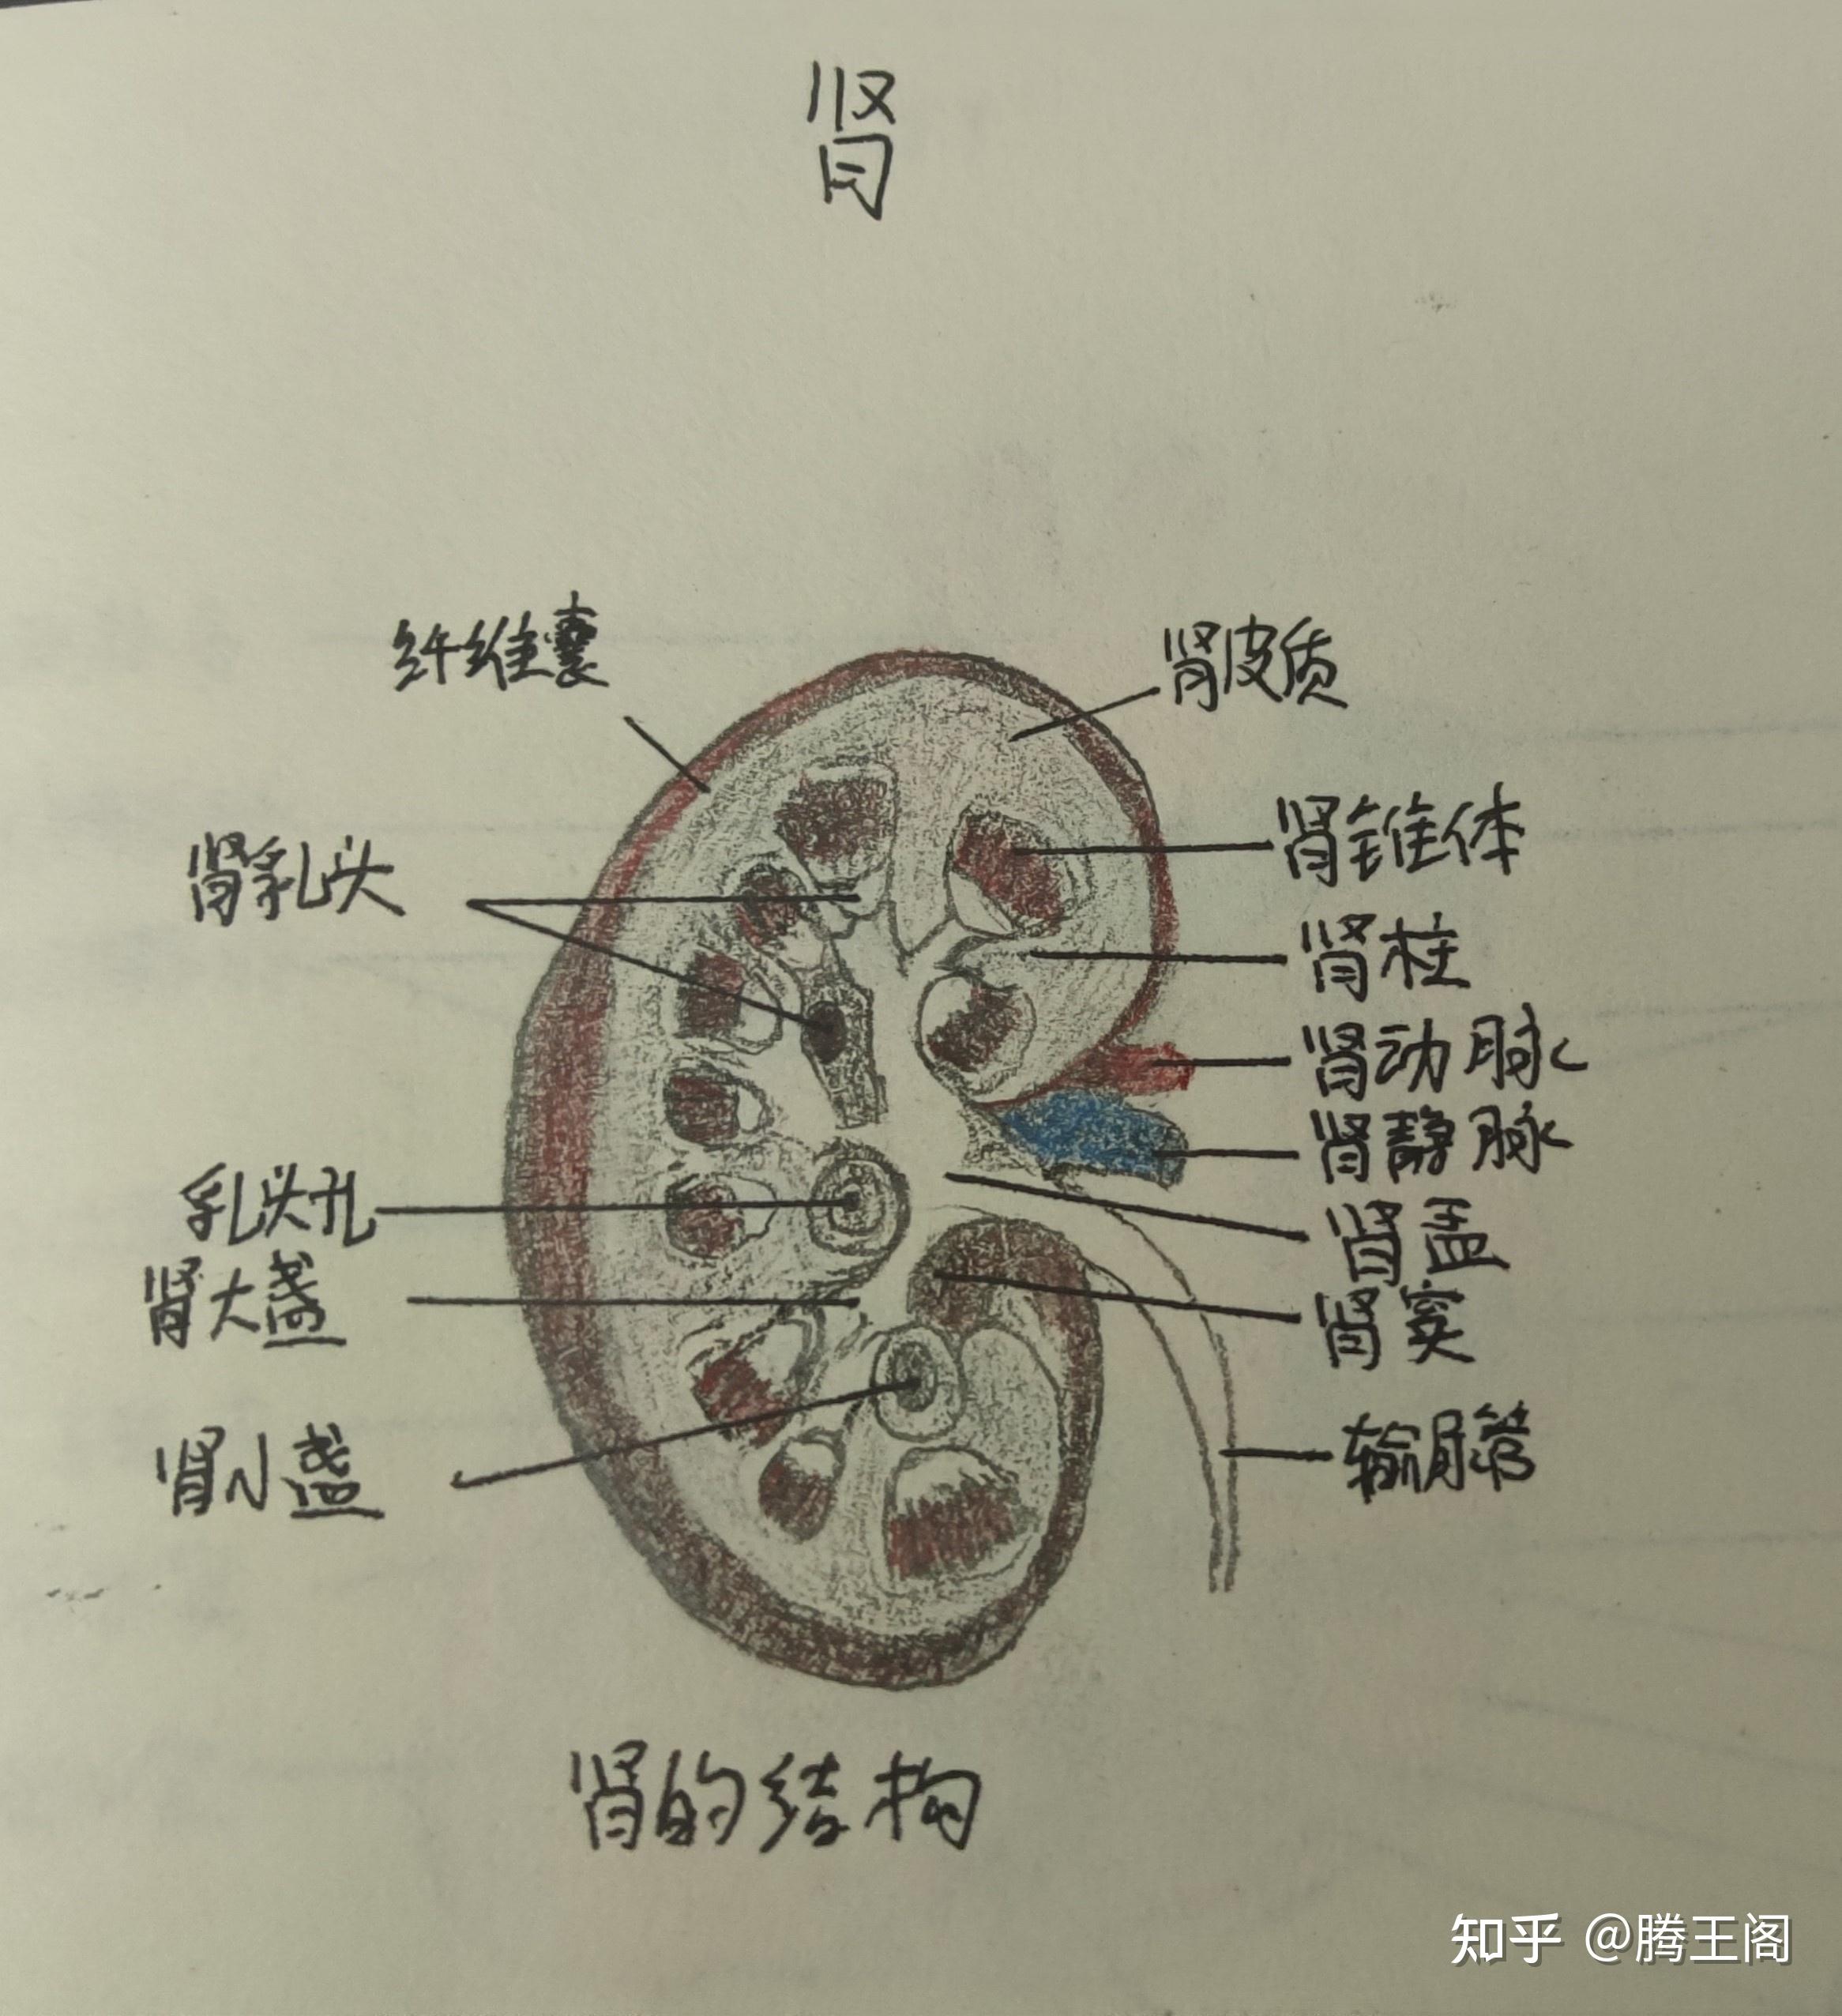 肾
纤维囊
肾皮质
肾锥体
肾乳头
肾柱
肾动脉
肾静脉
乳头孔
肾盂
肾大盏
肾窦
肾小盏
输尿管
肾的结构
知乎 @腾王阁